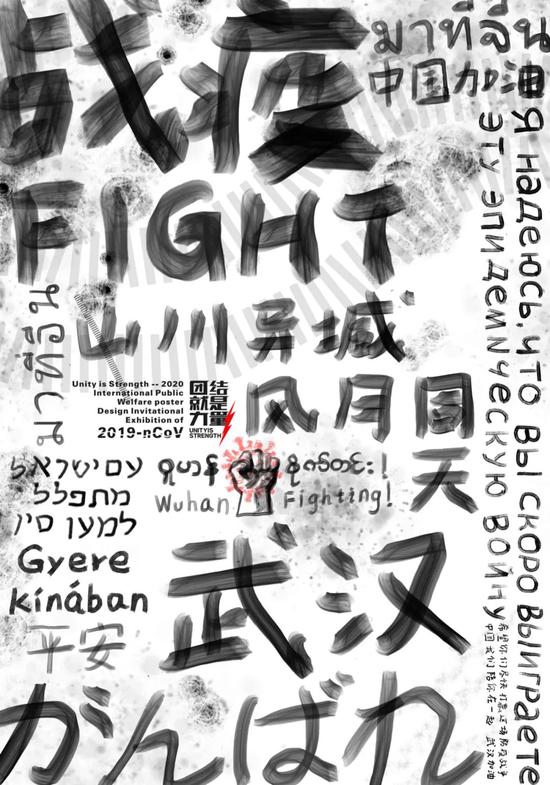 战疫
มาทีลีน
中国加油
FIGHT
Я надеюсь, что вы скоро выиграете
эту эпидемическую войну
山川异域
มาทีลีน
Unity is Strength -- 2020
International Public
Welfare poster
Design Invitational
Exhibition of
2019-nCoV
团结
就是
力量
UNITY IS
STRENGTH
风月同天
Wuhan Fighting!
עם ישראל
מתפלל
למען סין
Gyere
kínában
平安
武汉
がんばれ